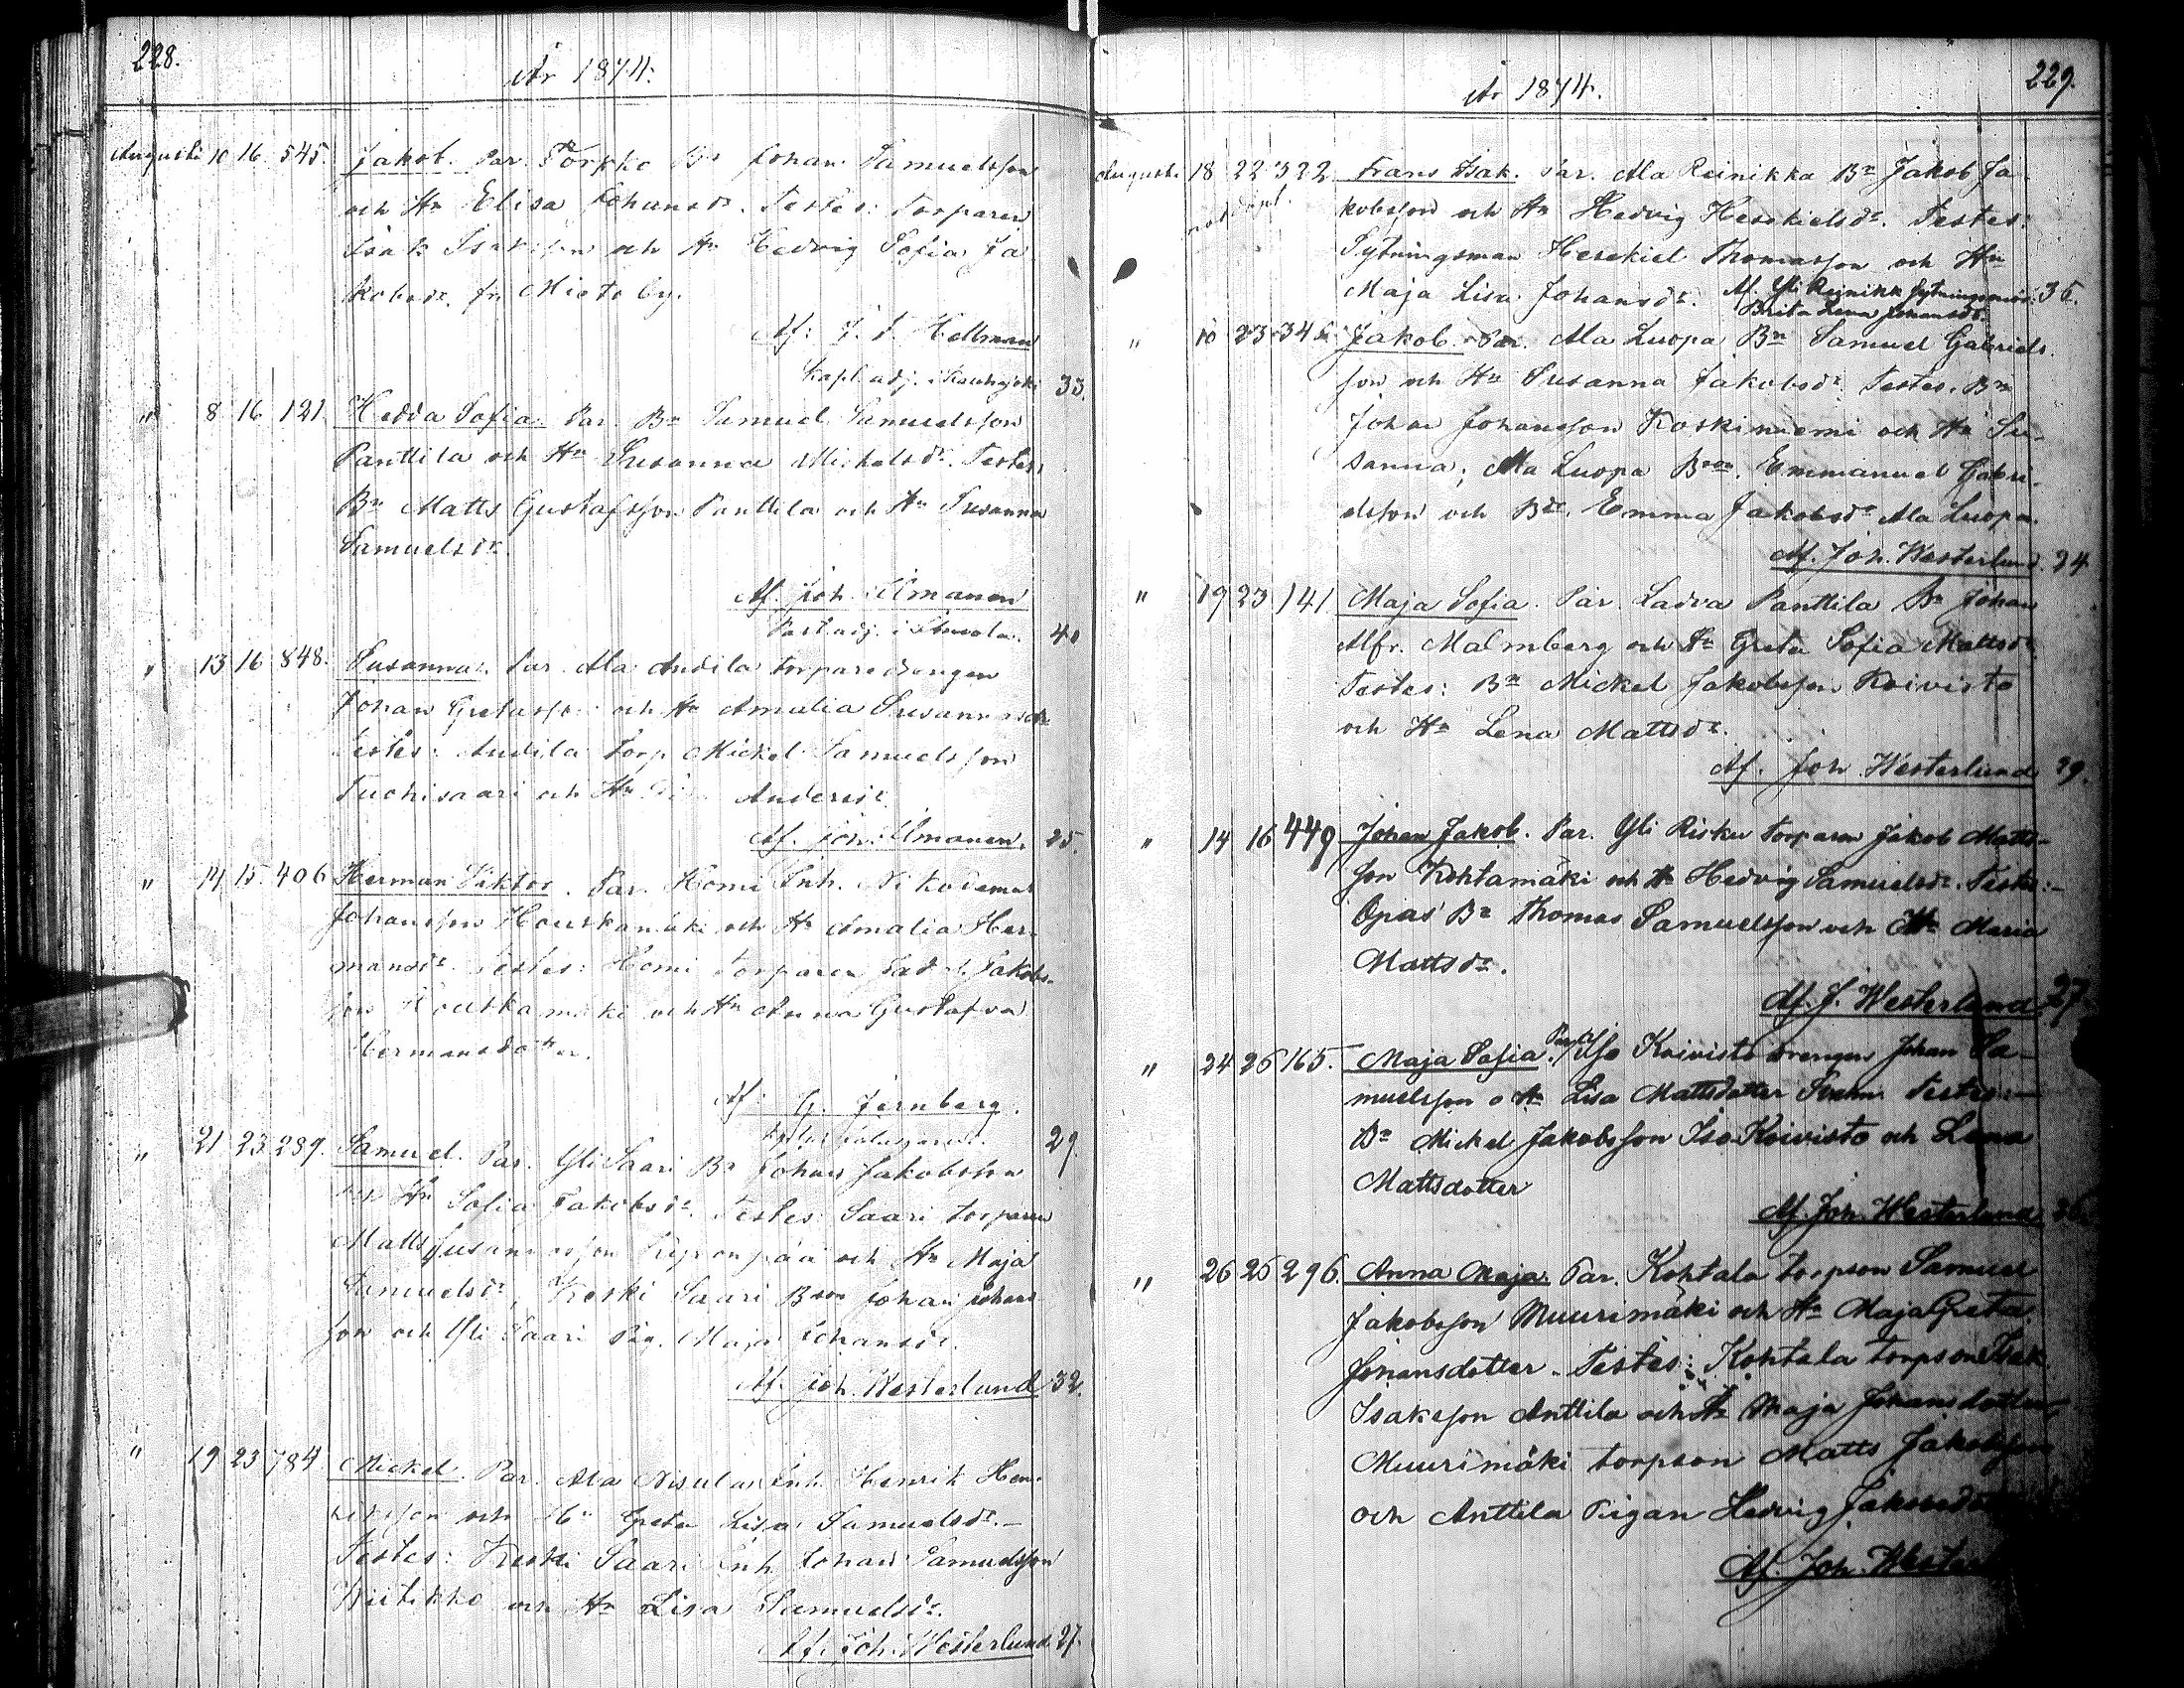 228.
År 1874.
Augusti 10 16. 545. Jakob. Par. Torkko Bn Johan Samuelsson
och Hu Elisa Johansdr. Testes: Torparen
Isak Isaksson och Hu Hedvig Sofia Ja
kobsdr. fr. Mieto by.
Af: J. F. Hellman
Kapl. adj. i Kauhajoki 33.
" 8 16 121 Hedda Sofia. Par. Bn Samuel Samuelsson
Panttila och Hu Susanna Michelsdr. Testes:
Bn Matts Gustafsson Panttila och Hu Susanna
Samuelsdr.
Af. Joh. Ilmanen
Past. adj. i 40
" 13 16 848. Susanna. Par. Ala Andila torparedrengen
Johan Gretasson och Hu Amalia Susannasdr
Testes: Andila Torp. Mickel Samuelsson
Tuohisaari och Hu Andersdr.
Af. Joh. Ilmanen. 25.
" 14 15. 406 Herman Viktor. Par. Homi Inh. Nikodemus
Johansson Houskamäki och Hu Amalia Her
mansdr. Testes: Homi Torparen Jakobs-
son Houskamäki och Hu Anna Gustafva
Hermansdotter.
Af: G. Jernberg.
29.
" 21 23 289. Samuel. Par. Yli Saari Bn Johan Jakobsson
och Hu Sofia Jakobsdr. Testes: Saari torparen
Matts Susannasson och Hu Maja
Samuelsdr, Keski Saari Bson Johan Johans
son och Yli Saari Pig. Maja Johansdr.
Af. Joh. Westerlund 32.
" 19 23 784 Mickel. Par. Ala Nisula Inh. Henrik Hen-
riksson och Hu Greta Lisa Samuelsdr. —
Testes: Keski Saari Inh. Johan Samuelsson
Kiitikko och Hu Lisa Samuelsdr.
Af. Joh. Westerlund 27.
229.
År 1874.
Augusti 18 22 322 Frans Isak. Par. Ala Reinikka Bn Jakob Ja-
nöddöpt. kobsson och Hu Hedvig Hesekielsdr. Testes:
Sytningsman Hesekiel Thomasson och Hu
Maja Lisa Johansdr. Af. Yli Reinikk Sytningsmör. 35.
Brita Lena Johansdr.
" 10 23 34 Jakob. Par. Ala Luopa Bn Samuel Gabriels
son och Hu Susanna Jakobsdr. Testes. Bn
Johan Johansson Koskiniemi och Hu Su-
sanna; Ala Luopa Bson. Emmanuel Gabri-
elsson och Bdr. Emma Jakobsdr Ala Luopa.
Af. Joh. Westerlund. 24
" 19 23 141 Maja Sofia. Par. Ladva Panttila Bn Johan
Alfr. Malmberg och Hu Greta Sofia Mattsdr.
Testes: Bn Mickel Jakobsson Koivisto
och Hu Lena Mattsdr.
Af. Joh Westerlund 29.
" 14 16 449 Johan Jakob. Par. Yli Risku Torparen Jakob Matts-
son Kohtamäki och Hu Hedvig Samuelsdr. Testes:-
Opas Bn Thomas Samuelsson och Hu Maria
Mattsdr.
Af. J. Westerlund. 27
" 24 26 165. Maja Sofia. Par. Iso Koivisto drengen Johan Sa-
muelsson o Hu Lisa Mattsdotter Testes:—
Bn Mickel Jakobsson Iso Koivisto och Lena
Mattsdotter
Af. Joh. Westerlund 36
" 26 26 296. Anna Maja. Par. Kohtala torpson Samuel
Jakobsson Muurimäki och Hu Maja Greta
Johansdotter. Testes: Kohtala torpson Isak
Isaksson Anttila och Hu Maja Johansdotter,
Muurimäki torpson Matts Jakobsson
och Anttila Pigan Hedvig Jakobsd
Af. Joh. Wester